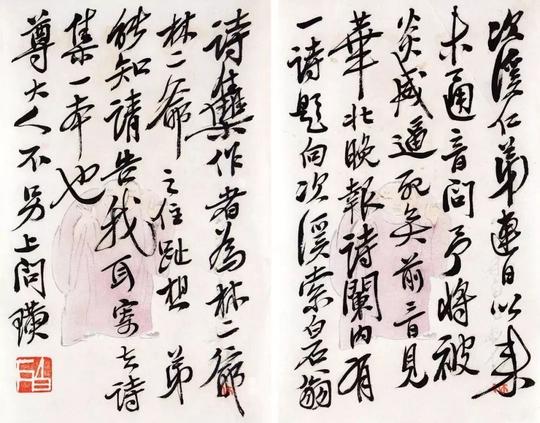 次溪仁弟連日以來
未通音問予將被
炎威逼死矣前三日見
華北晚報詩闌內有
一詩題向次溪索白石翁
詩集作者為林二爺
林二爺之住趾想弟
能知請告我寄去詩
集一本也
尊大人不另上問璜